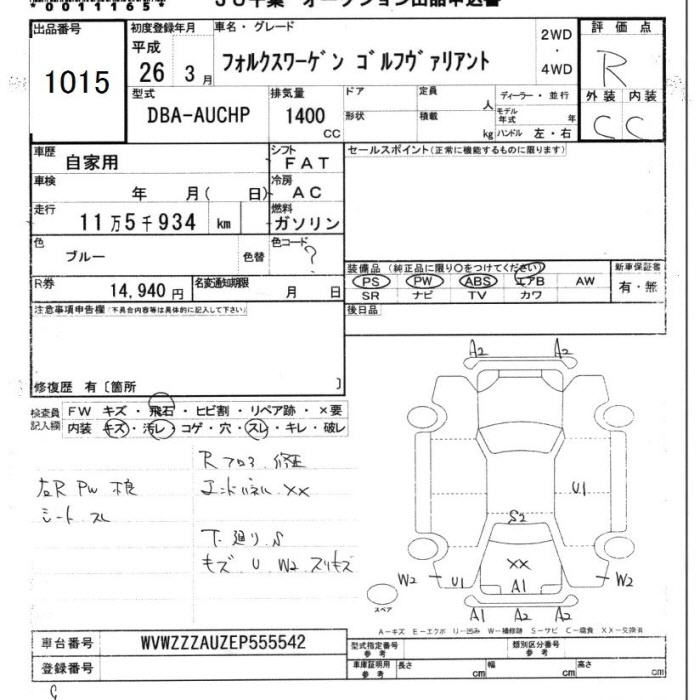 *00111651*
JU千葉 オークション出品申込書
出品番号 初度登録年月 車名・グレード 2WD・4WD 評価点
1015 平成26 3月 フォルクスワーゲン ゴルフヴァリアント R
型式 排気量 ドア 定員 人 ディーラー・並行 外装 内装
DBA-AUCHP 1400 CC 形状 積載 kg モデル年式 年 ハンドル 左・右 C C
車歴 自家用 シフト FAT セールスポイント(正常に機能するものに限ります)
車検 年 月( 日) 冷房 AC
走行 11万5千934 km 燃料 ガソリン
色 ブルー 色替 色コード ?
装備品(純正品に限り○をつけてください) 新車保証書
PS PW ABS エアB AW 有・無
SR ナビ TV カワ
R券 14,940円 名変通知期限 月 日
注意事項申告欄(不具合内容等は具体的に記入して下さい) 後日品
修復歴 有〔箇所 〕
検査員記入欄 FW キズ・飛石・ヒビ割・リペア跡・×要
内装 キズ・汚レ・コゲ・穴・スレ・キレ・破レ
左R PW 不良
シート スレ
Rフロア 修正
エンドパネル XX
下廻り S
キズ U W2 スリキズ
A2 A2
U1
S2
XX
W2 U1 A1 W2
スペア
A1 A2 A2
A-キズ E-エクボ U-凹み W-補修跡 S-サビ C-腐食 XX-交換済
車台番号 WVWZZZAUZEP555542 型式指定番号 参考 類別区分番号 参考
登録番号 車庫証明用 参考 長さ cm 幅 cm 高さ cm